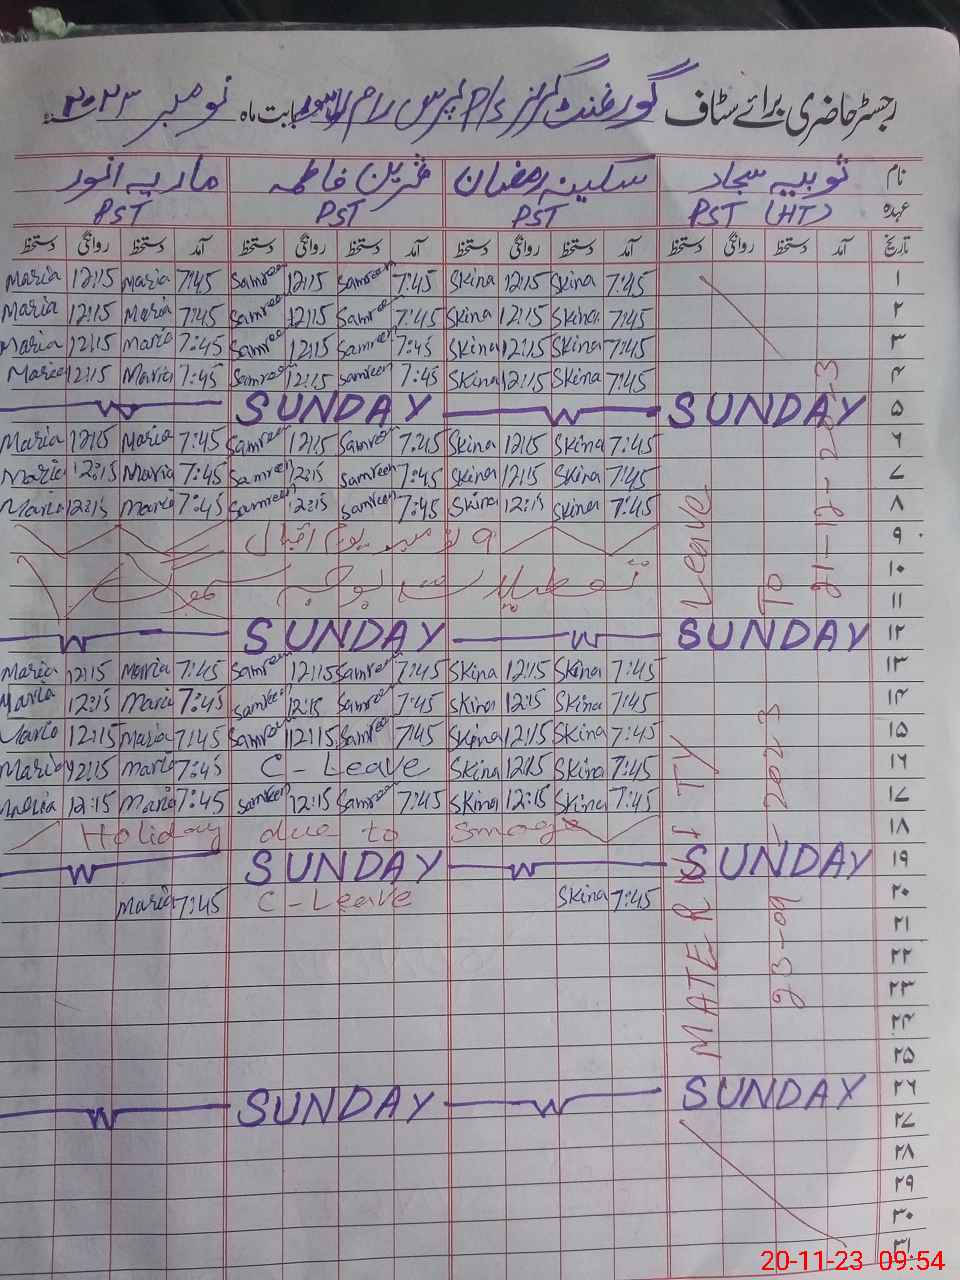 رجسٹر حاضری برائے سٹاف گورنمنٹ گرلز P/S بابت ماہ نومبر ۲۰۲۳
نام ثوبیہ سجاد سکینہ رمضان ثمرین فاطمہ ماریہ انور
عہدہ PST (HT) PST PST PST
تاریخ آمد دستخط روانگی دستخط آمد دستخط روانگی دستخط آمد دستخط روانگی دستخط آمد دستخط روانگی دستخط
Maria 12:15 Maria 7:45 Samreen 12:15 Samreen 7:45 Skina 12:15 Skina 7:45 ۱
Maria 12:15 Maria 7:45 Samreen 12:15 Samreen 7:45 Skina 12:15 Skina 7:45 ۲
Maria 12:15 Maria 7:45 Samreen 12:15 Samreen 7:45 Skina 12:15 Skina 7:45 ۳
Maria 12:15 Maria 7:45 Samreen 12:15 Samreen 7:45 Skina 12:15 Skina 7:45 ۴
SUNDAY SUNDAY ۵
Maria 12:15 Maria 7:45 Samreen 12:15 Samreen 7:45 Skina 12:15 Skina 7:45 ۶
Maria 12:15 Maria 7:45 Samreen 12:15 Samreen 7:45 Skina 12:15 Skina 7:45 ۷
Maria 12:15 Maria 7:45 Samreen 12:15 Samreen 7:45 Skina 12:15 Skina 7:45 ۸
۹ نومبر یوم اقبال ۹
تعطیلات بوجہ سموگ ۱۰
۱۱
SUNDAY SUNDAY ۱۲
Maria 12:15 Maria 7:45 Samreen 12:15 Samreen 7:45 Skina 12:15 Skina 7:45 ۱۳
Maria 12:15 Maria 7:45 Samreen 12:15 Samreen 7:45 Skina 12:15 Skina 7:45 ۱۴
Maria 12:15 Maria 7:45 Samreen 12:15 Samreen 7:45 Skina 12:15 Skina 7:45 ۱۵
Maria 12:15 Maria 7:45 C-Leave Skina 12:15 Skina 7:45 ۱۶
Maria 12:15 Maria 7:45 Samreen 12:15 Samreen 7:45 Skina 12:15 Skina 7:45 ۱۷
Holiday due to Smoge ۱۸
SUNDAY SUNDAY ۱۹
Maria 7:45 C-Leave Skina 7:45 ۲۰
۲۱
۲۲
۲۳
۲۴
۲۵
SUNDAY SUNDAY ۲۶
۲۷
۲۸
۲۹
۳۰
۳۱
MATERNITY Leave
23-09-2023 To
21-12-2023
20-11-23 09:54